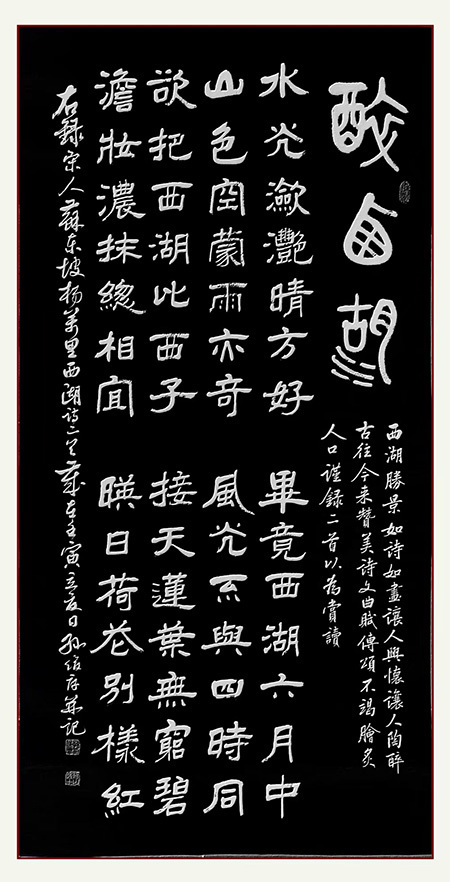 醉西湖
西湖勝景如詩如畫讓人興懷讓人陶醉
古往今来贊美詩文曲賦傳頌不竭膾炙
人口謹録二首以為賞讀
水光瀲灧晴方好
山色空蒙雨亦奇
欲把西湖比西子
澹妝濃抹緫相宜
畢竟西湖六月中
風光不與四時同
接天蓮葉無窮碧
暎日荷花別樣紅
右録宋人蘇東坡楊萬里西湖詩二首歲在壬寅立夏日孫并記